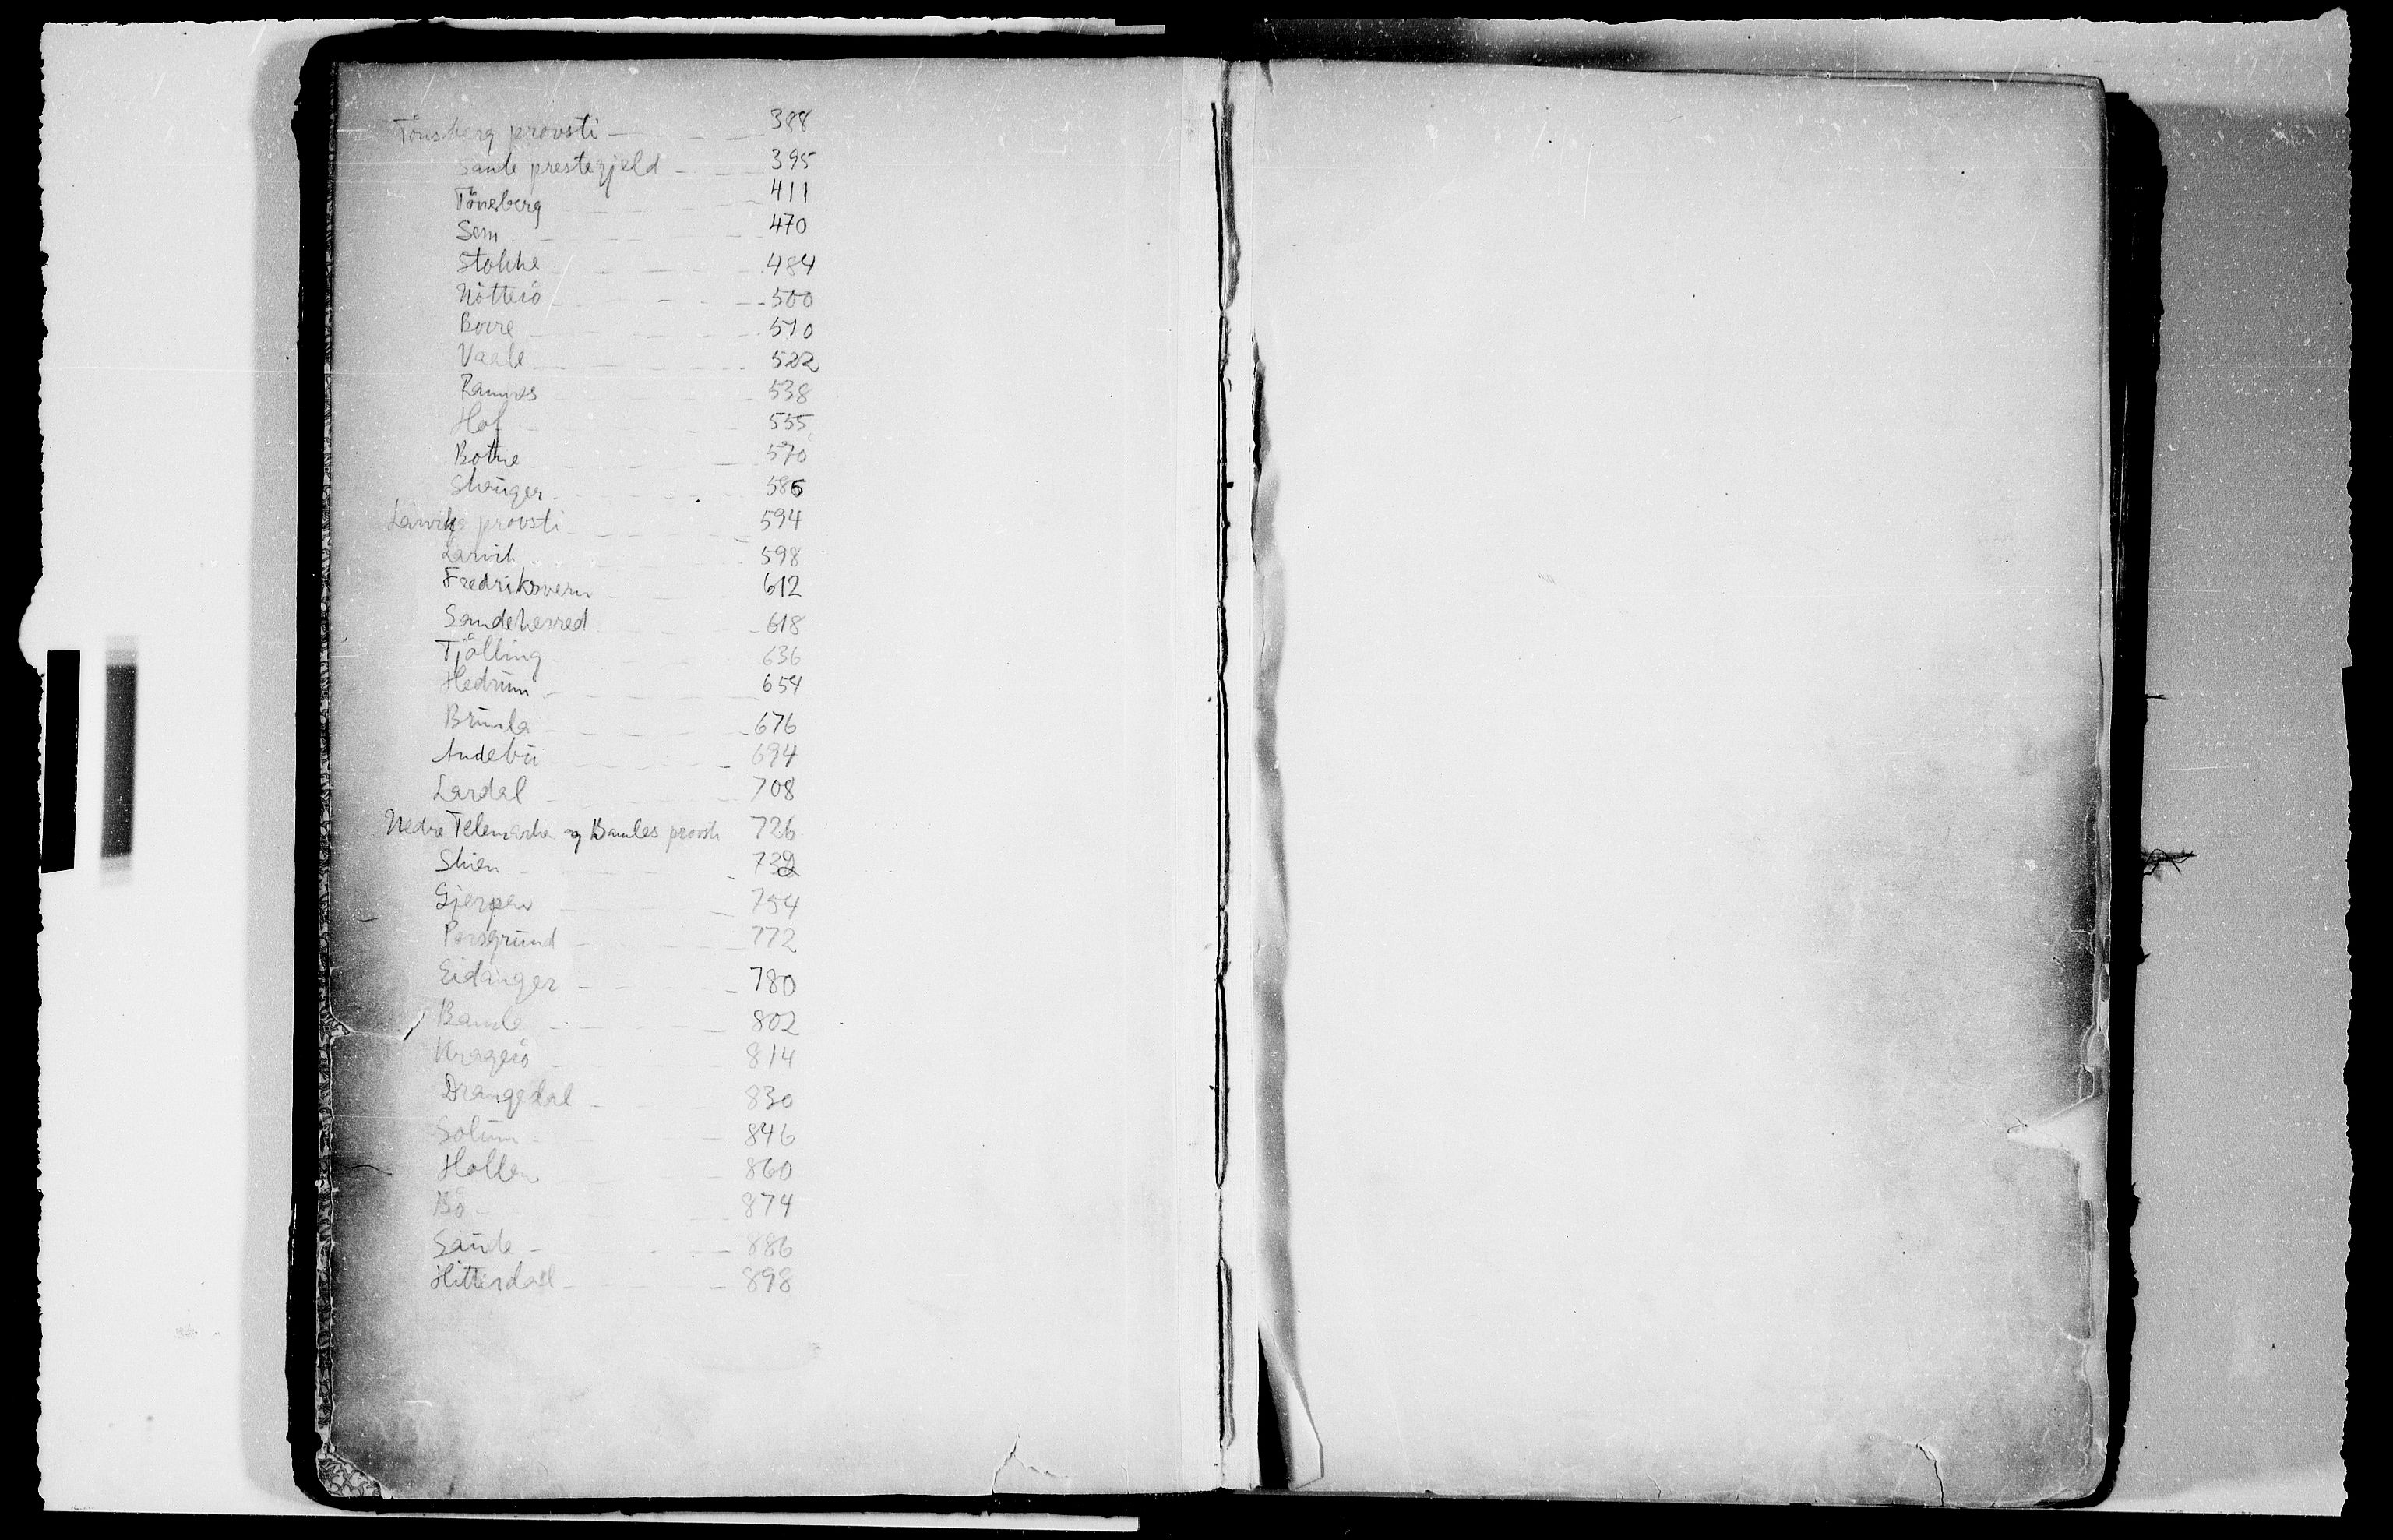 Tönsberg provsti — — — 388
Sande prestegjeld — — — 395
Tönsberg — — — 411
Sem — — — 470
Stokke — — — 484
Nötterö — — — 500
Borre — — — 510
Vaale — — — 522
Ramnes — — — 538
Hof — — — 555
Botne — — — 570
Skauger — — — 586
Larviks provsti — — — 594
Larvik — — — 598
Fredriksvern — — — 612
Sandeherred — — — 618
Tjölling — — — 636
Hedrum — — — 654
Brunla — — — 676
Andebu — — — 694
Lardal — — — 708
Nedre Telemarke og Bamles provsti 726
Skien — — — 732
Gjerpen — — — 754
Porsgrund — — — 772
Eidanger — — — 780
Bamle — — — 802
Kragerö — — — 814
Drangedal — — — 830
Solum — — — 846
Hollen — — — 860
Bö — — — 874
Saude — — — 886
Hitterdal — — — 898